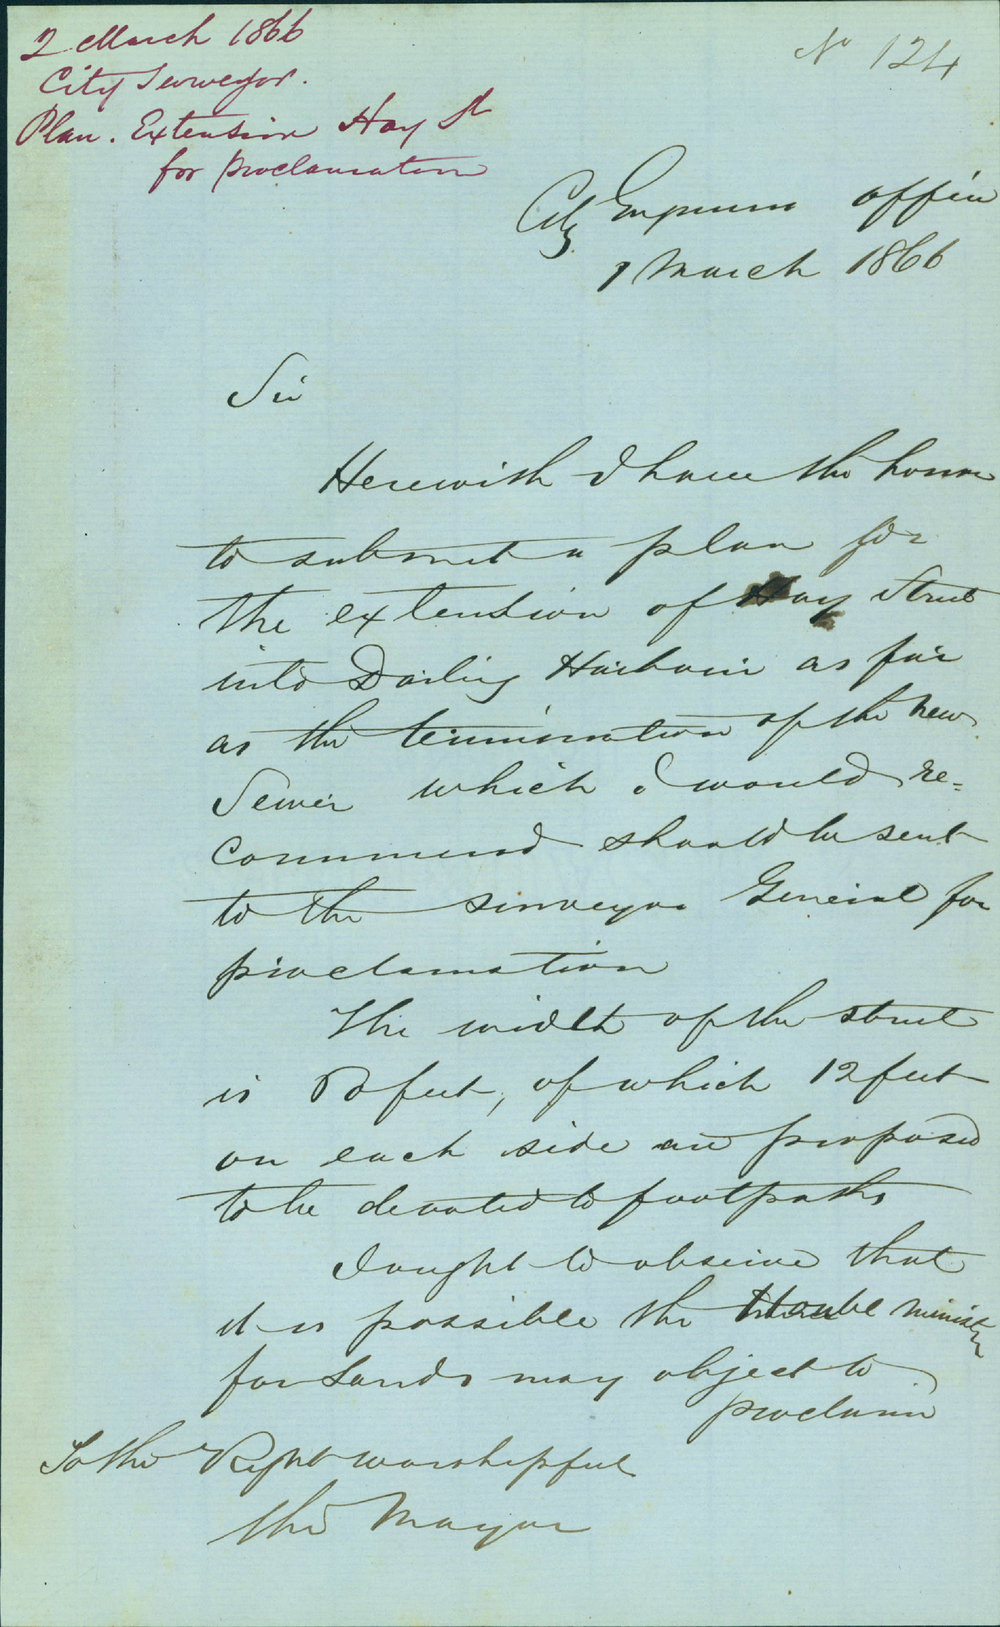 2 March 1866
City Surveyor.
Plan. Extension Hay St
for proclamation
No 124
City Engineers office
1 March 1866
Sir
Herewith I have the honor
to submit a plan for
the extension of Hay Street
into Darling Harbour as far
as the termination of the new
Sewer which I would re=
commend should be sent
to the Surveyor General for
proclamation
The width of the street
is feet, of which 12 feet
on each side are proposed
to be devoted to footpaths
I ought to observe that
it is possible the Honble Minister
for Lands may object to
proclaim
To the Right Worshipful
the Mayor